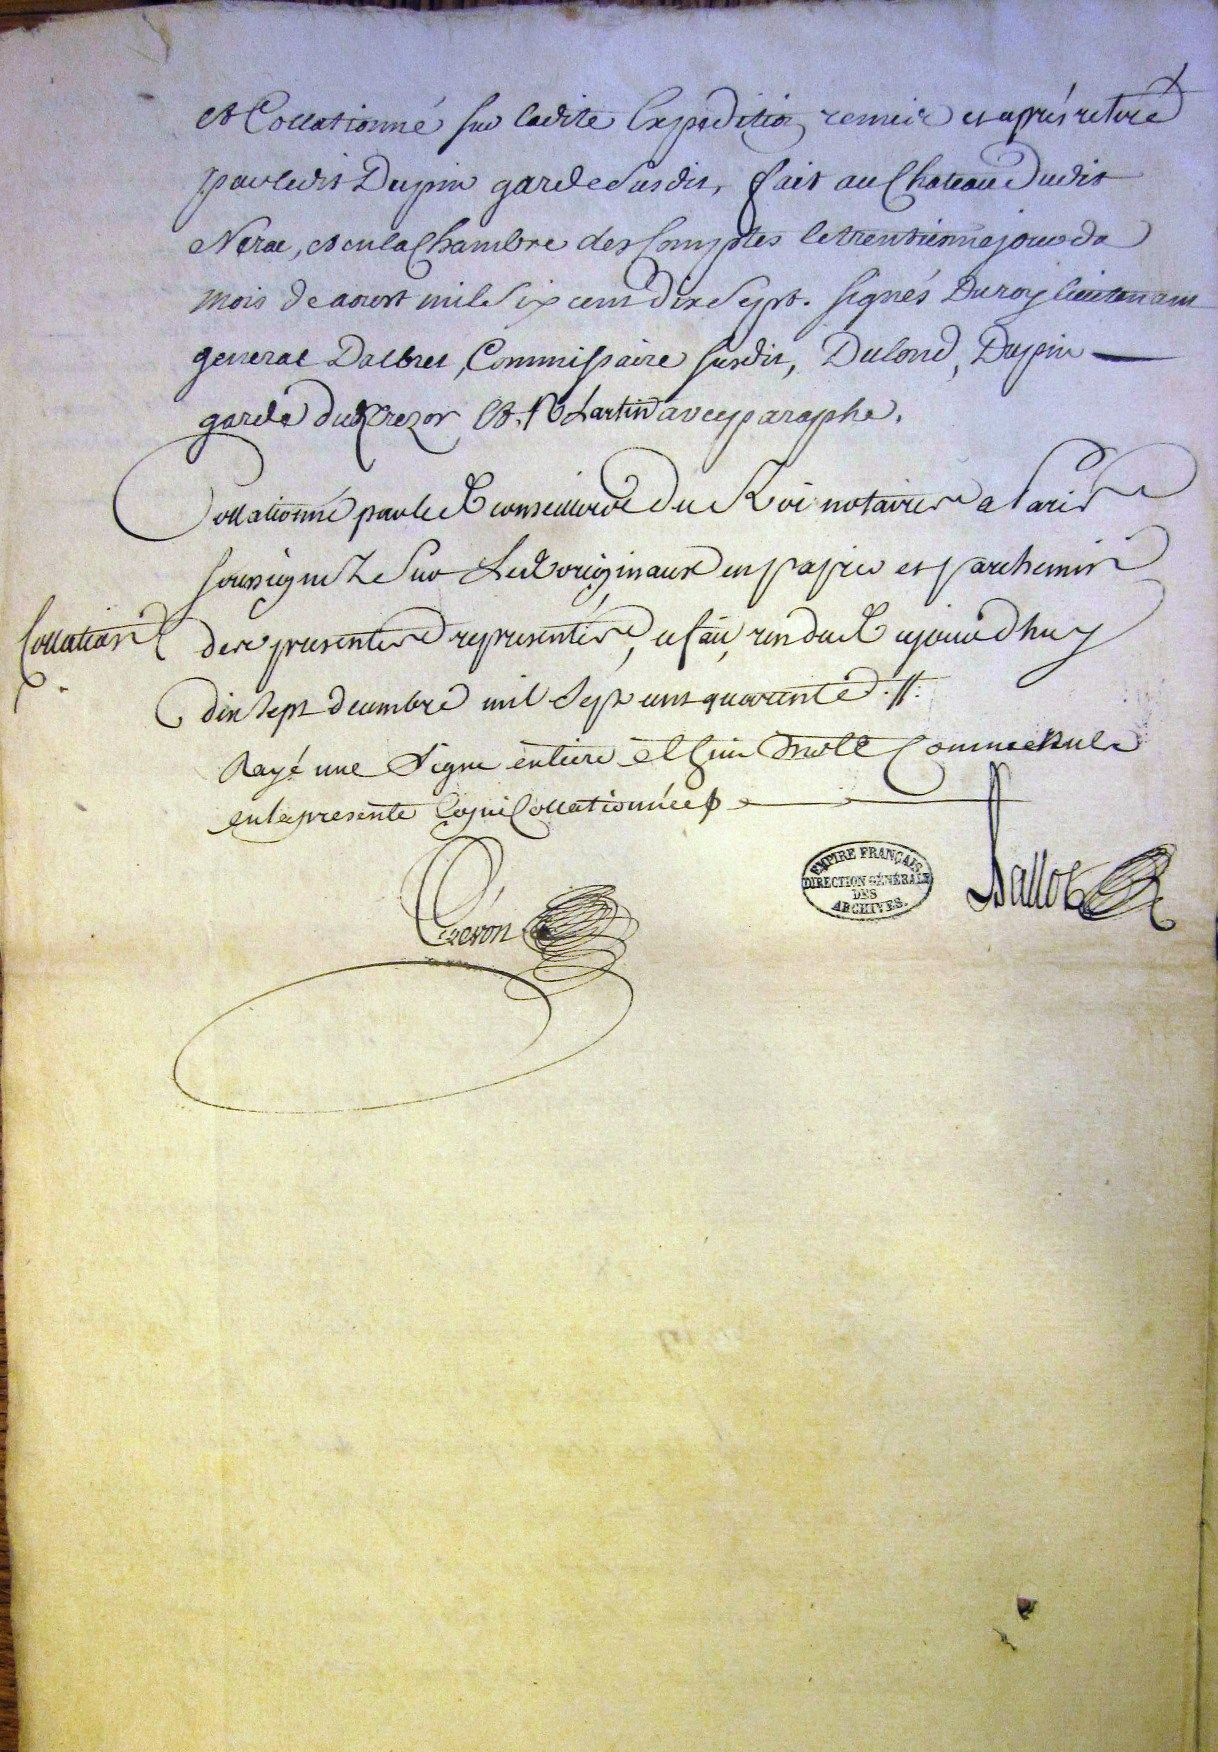 et Collationné sur ladite Expedition remise et aprés retiré
par ledit Dupin garde Susdit, fait au Chateau dudit
Nerac, et en la Chambre des Comptes le trentiéme jour du
mois de aoust mil Six cent dix Sept. signés Duroy lieutenant
general Dalbret, Commissaire susdit, Dulond, Dupin
garde du trezor Et Martin avec paraphe.
Collationné par les Conseillers du Roi notaires a Paris
soussignez Sur Les originaux en papier et parchemin
Collation
des presentes representés, ce fait, rendus Cejourdhuy
dix sept decembre mil Sept cent quarante .//.
Rayé une Ligne entiere et cinq mots Comme nuls
en la presente Copie Collationnée
EMPIRE FRANÇAIS
DIRECTION GÉNÉRALE
DES
ARCHIVES.
Ballot